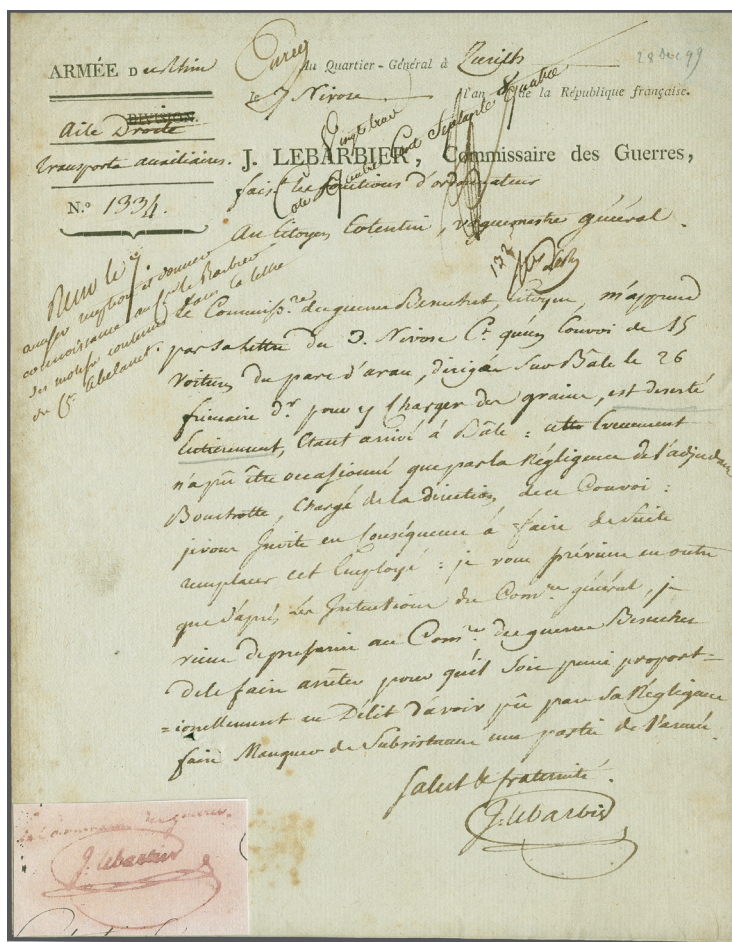 28 Dec 99
ARMÉE Du Rhin
Du Quartier-Général à Zurich
Le 7 Nivose l'an 8 de la République française.
DIVISION.
Aile Droite
Transports auxiliaires.
N.º 1334.
J. LEBARBIER, Commissaire des Guerres,
fais.t les fonctions d'ordonnateur
Au Citoyen Cotentin, vaguemestre général.
Le Commiss.re des guerres Besuchet, Citoyen, m'apprend
par sa lettre du 3. Nivose C.t qu'un Convoi de 15
voitures du parc d'arau, dirigés sur Bâle le 26
frimaire d.r pour y charger des grains, est deserté
Entierement, étant arrivé à Bâle : cette Evenement
n'a pû être occasionné que par la Négligence de l'adjudant
Bouchotte, chargé de la direction de ce Convoi :
je vous Invite en Conséquence à faire de suite
remplacer cet Employé : je vous préviens en outre
que d'après les Intentions du Com.re général, je
viens de prescrire au Com.re des guerres Besuchet
de le faire arrêter pour qu'il soit puni proport=
=ionellement au Délit d'avoir pû par sa Négligence
faire Manquer de Subsistance une partie de l'armée.
Salut & fraternité.
J. Lebarbier
des guerres
J. Lebarbier